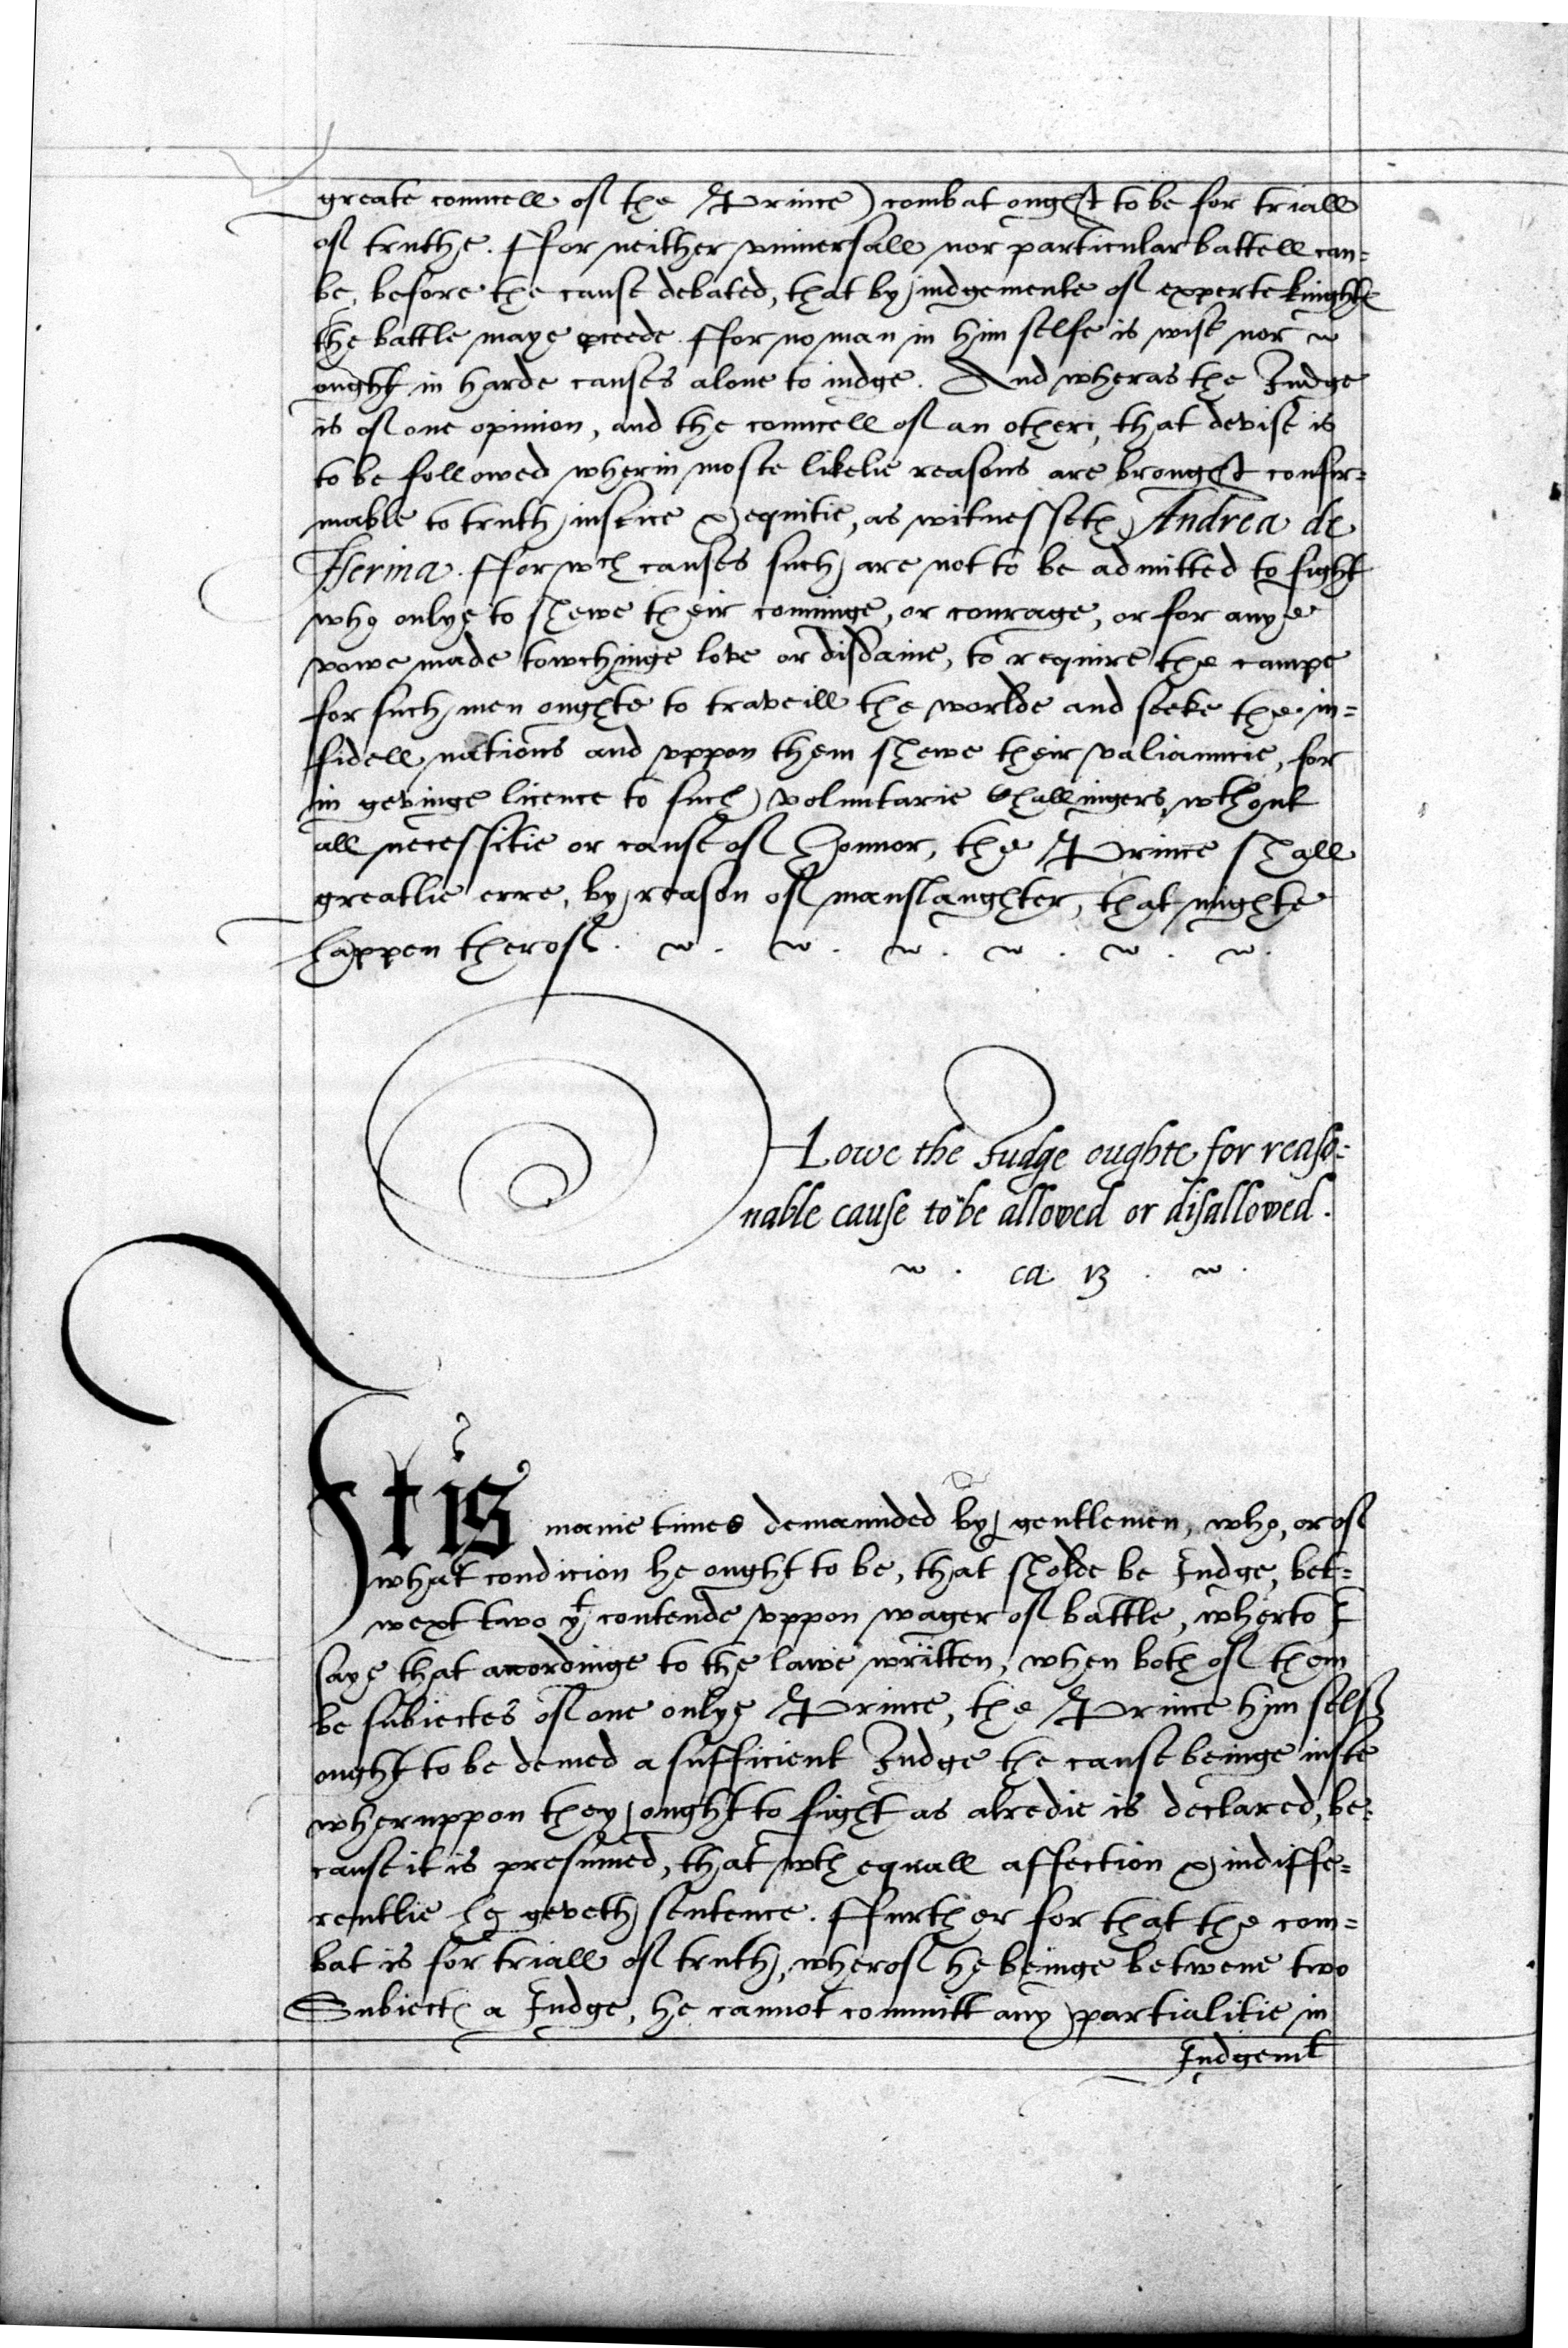 greate councell of the Prince) combat ought to be for triall
of truthe. Ffor neither vniuersall nor particular battell can=
be, before the cause debated, that by iudgemente of experte kinghtes
the battle maye proceede. Ffor no man in him selfe is wise nor
ought in harde causes alone to iudge. And wheras the Iudge
is of one opinion, and the councell of an other, that devise is
to be followed wherin moste likelie reasons are brought confir=
mable to truth iustice & equitie, as witnesseth Andrea de
Iserina. Ffor wch causes such are not to be admitted to fight
who onlye to shewe their conninge, or courage, or for anye
vowe made towchinge love or disdaine, to require the campe
for such men oughte to traveill the worlde and seeke the in=
fidell nations and vppon them shewe their valiauncie, for
in gevinge licence to such voluntarie Challingers, wthout
all necessitie or cause of Honnor, the Prince shall
greatlie erre, by reason of manslaughter, that mighte
happen therof.
Howe the Iudge oughte for reaso=
nable cause to be allowed or disallowed.
ca 13
It is manie times demaunded by gentlemen, who, or of
what condicion he ought to be, that sholde be Iudge, bet=
wext two yt contende vppon wager of battle, wherto I
saye that accordinge to the lawe written, when both of them
be subiectes of one onlye Prince, the Prince him self
ought to be demed a sufficient Iudge the cause beinge iuste
wheruppon they ought to fight as alredie is declared, be=
cause it is presumed, that wth equall affection & indiffe=
rentlie he geveth sentence. Ffurther for that the com=
bat is for triall of truth, wherof he beinge betwene two
Subiectes a Iudge, he cannot committ any partialitie in
Iudgemt